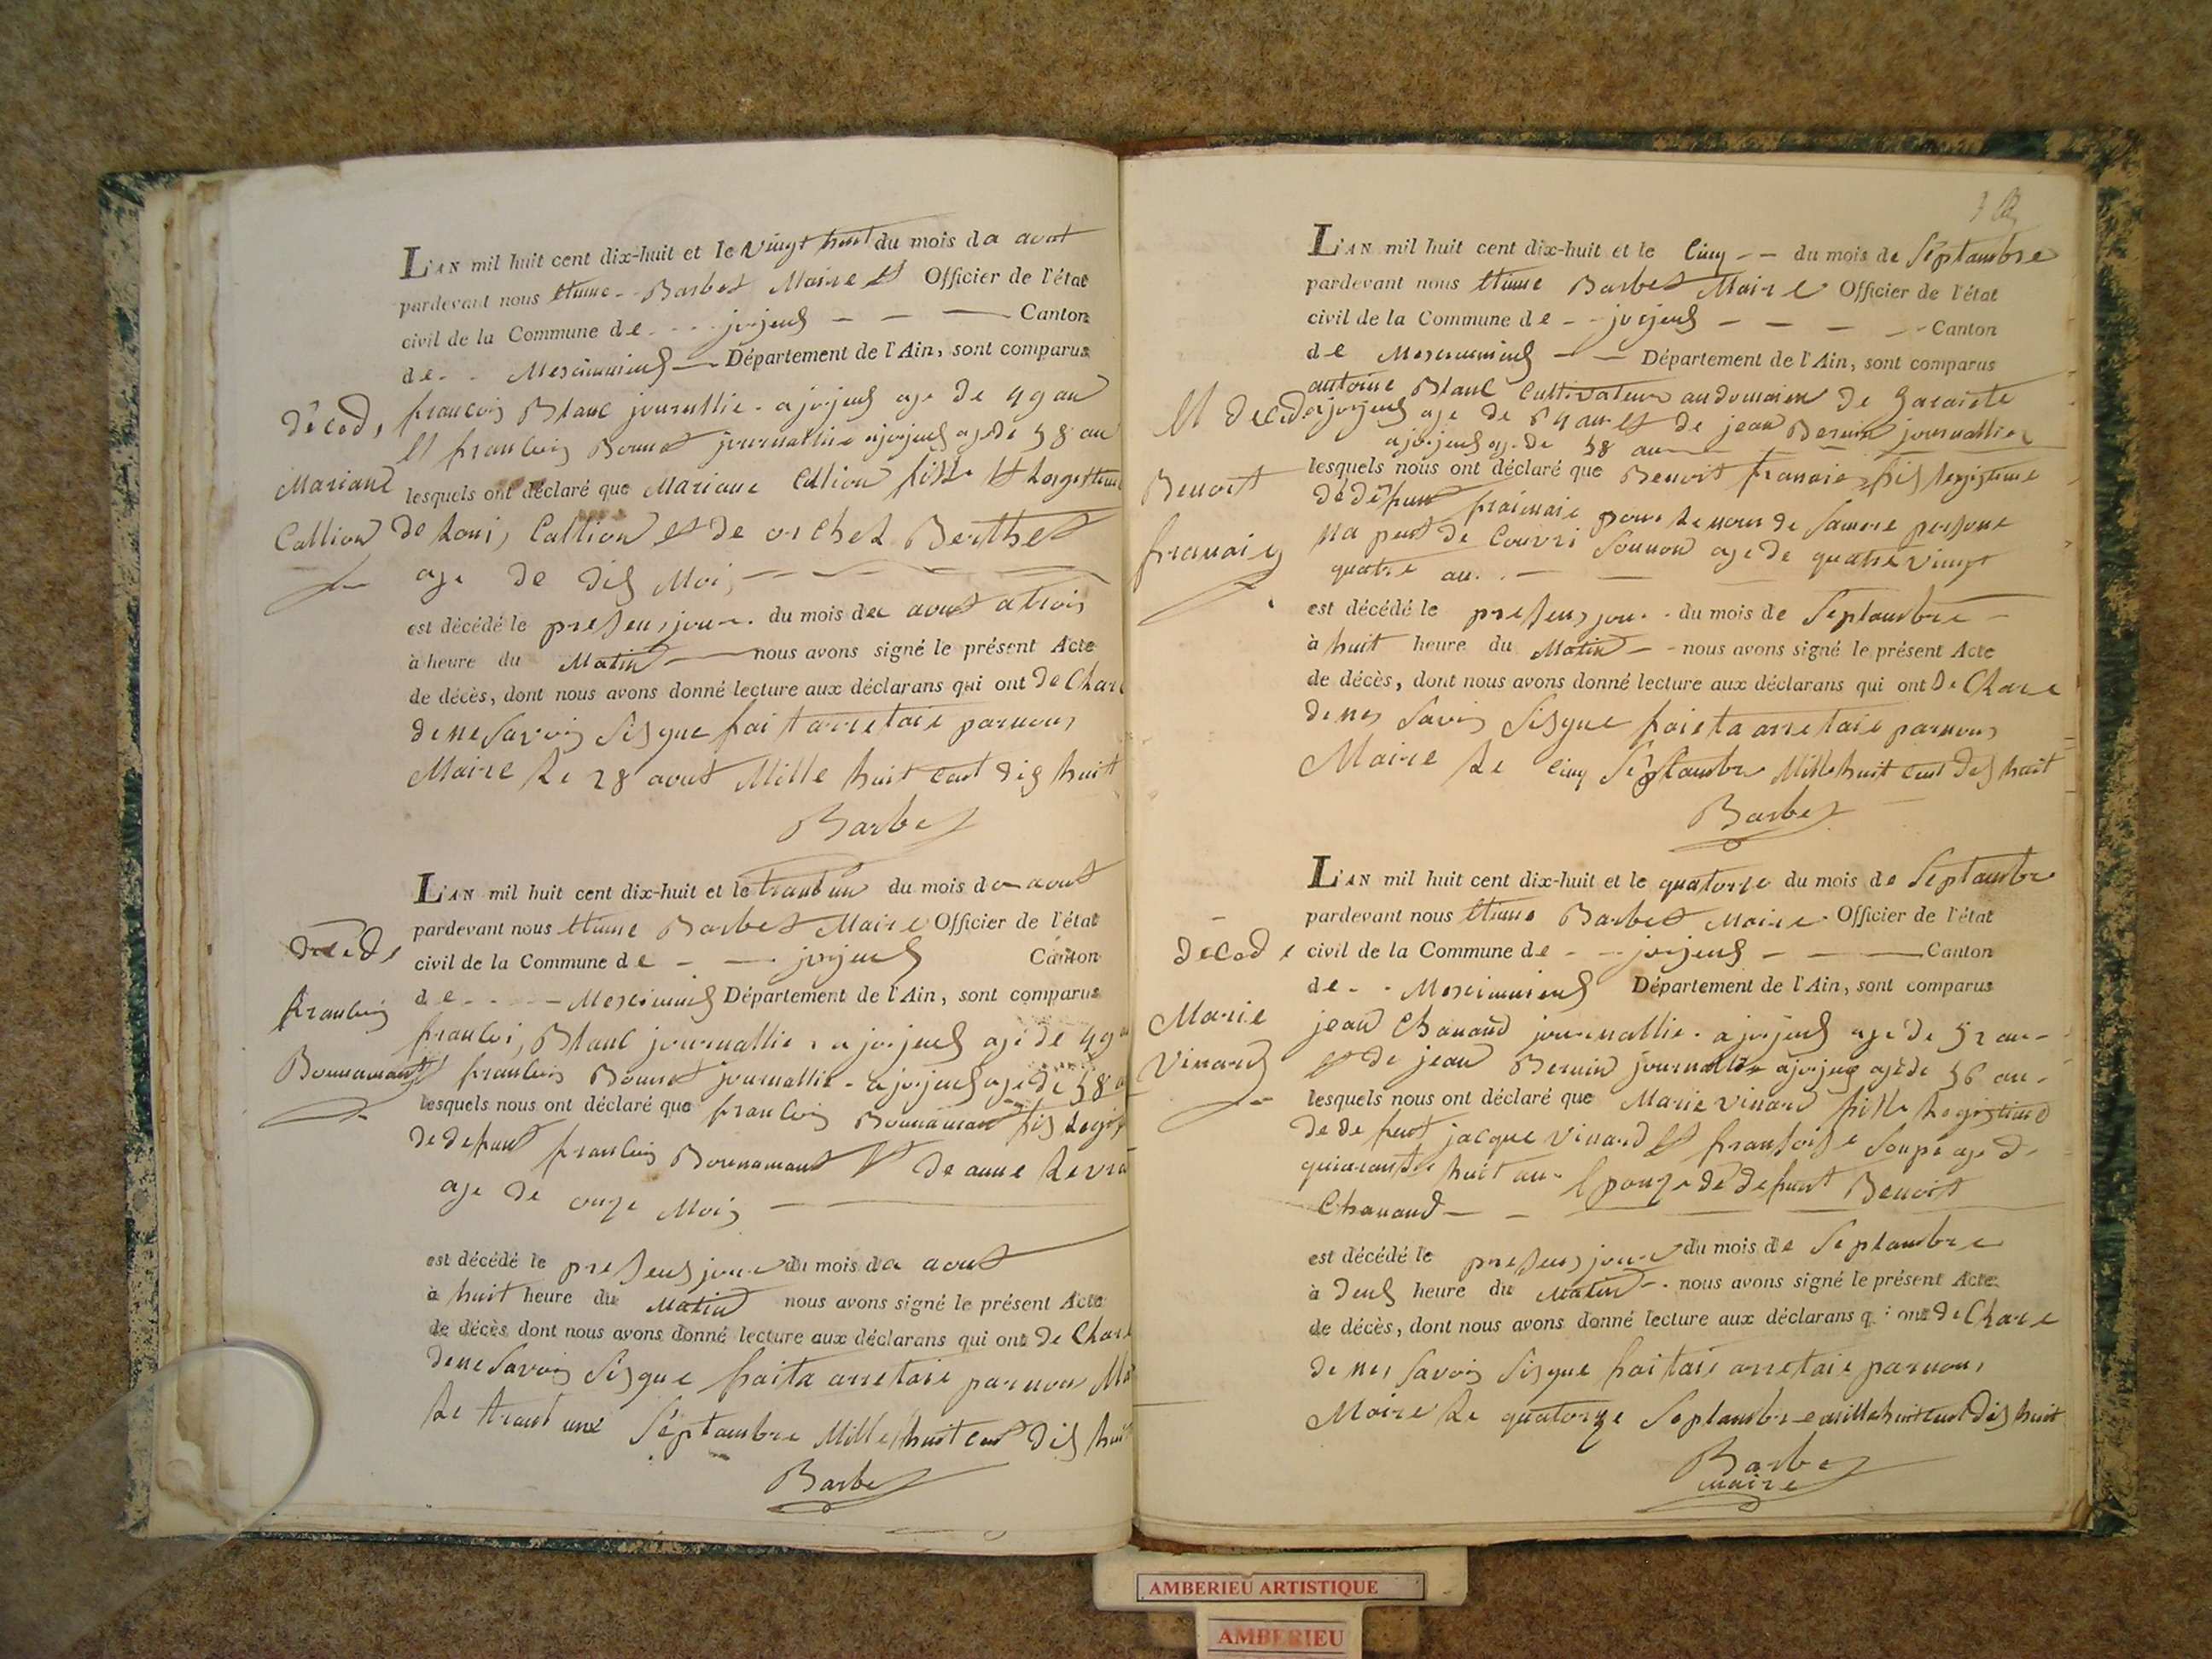 L'AN mil huit cent dix-huit et le vingt huit du mois da avout
pardevant nous Etiene Barbet Maire et Officier de l'état
civil de la Commune de jojeux Canton
de Meximieux Département de l'Ain, sont comparus
décéd,
francois Blanc journallie a jojeux age de 49 an
Et francois Bonnet journallie ajojeux age de 58 an
Mariane
lesquels ont déclaré que Mariane Callion fille
Callion
de Loui, Callion et de Berthet
age de dix Moi,
est décédé le presens jour du mois de avout a troi,
à heure du Matin nous avons signé le présent Acte
de décès, dont nous avons donné lecture aux déclarans qui ont de Clare
de ne savoir sisgne fait arretaie parnous
Maire Le 28 avout Mille huit cent dix huit
Barbet
L'AN mil huit cent dix-huit et le trant un du mois de avout
pardevant nous Etiene Barbet Maire Officier de l'état
civil de la Commune de jojeux Canton
de Meximieux Département de l'Ain, sont comparus
francoi, Blanc journallie a jojeux age de 49
francois Bonnet journallie a jojeux age de 58
francois
Bonnamant
lesquels nous ont déclaré que francois Bonnamant fis
de defunt francois Bonnamant Et de anne
age de onze Moi,
est décédé le presens jour du mois da avout
à huit heure du Matin nous avons signé le présent Acte
de décès, dont nous avons donné lecture aux déclarans qui ont de Clare
de ne savoir sisgne faita arretaie parnous
Le trant une Septambre Mille huit cent dix huit
Barbet
L'AN mil huit cent dix-huit et le Cinq du mois de Septambre
pardevant nous Etiene Barbet Maire Officier de l'état
civil de la Commune de jojeux Canton
de Meximieux Département de l'Ain, sont comparus
antoine Blanc Cultivateur audomaine de
a jojeux age de 64 an et de jean Bernin journallier
ajojeux age de 58 an
Benoit
lesquels nous ont déclaré que Benoit
de defunt
na peut de Couvri Sounon age de quatre vingt
quatre an
est décédé le presens jour du mois de Septambre
à huit heure du Matin nous avons signé le présent Acte
de décès, dont nous avons donné lecture aux déclarans qui ont de Clare
de nes savoir sisgne faieta arretaie parnous
Maire Le cinq Septambre Mille huit cent dix huit
Barbet
L'AN mil huit cent dix-huit et le quatorze du mois de Septambre
pardevant nous Etiene Barbet Maire Officier de l'état
décéde
civil de la Commune de jojeux Canton
de Meximieux Département de l'Ain, sont comparus
Marie
Vinard
jean Chanaud journallie a jojeux age de 52 an
et de jean Bernin journallie ajojeux age de 56 an
lesquels nous ont déclaré que Marie vinard fille
de de funt jacque vinard Et fransoise age de
quarante huit an Epouze de defunt Benoit
Chanaud
est décédé le presens jour du mois de Septambre
à deux heure du Matin nous avons signé le présent Acte
de décès, dont nous avons donné lecture aux déclarans qui ont de Clare
de nes savoir sisgne faitaie arretaie parnous
Maire Le quatorze Septambre mille huit cent dix huit
Barbet
maire
AMBERIEU ARTISTIQUE
AMBERIEU